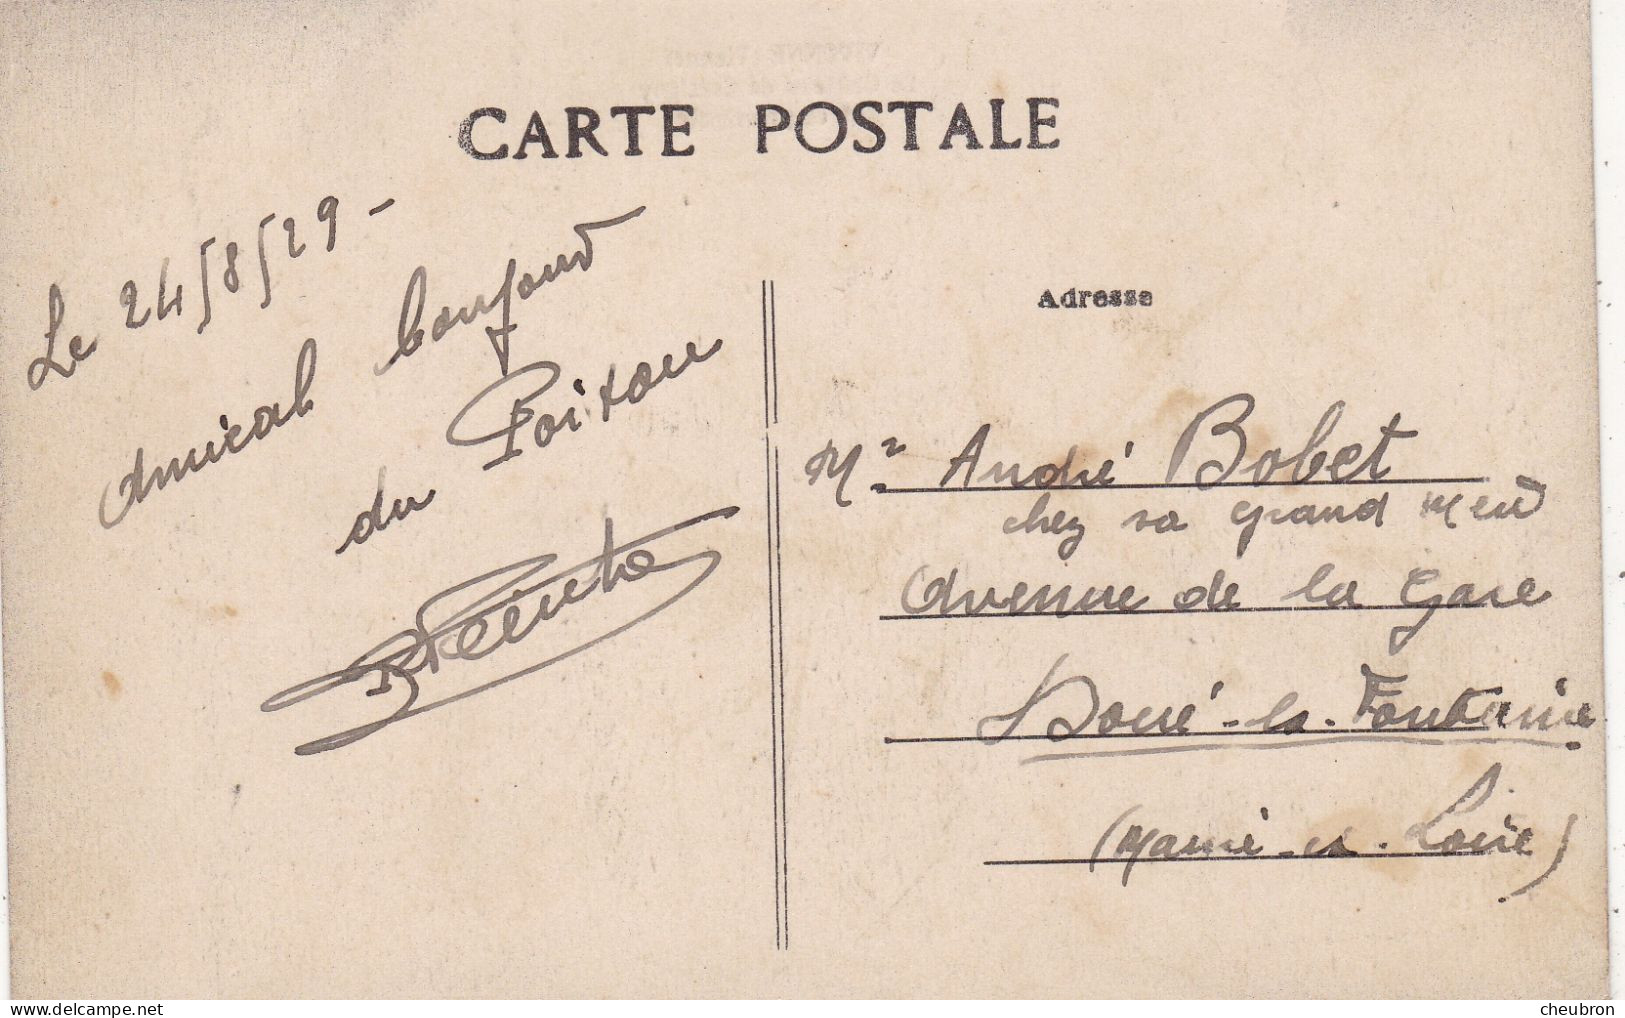 CARTE POSTALE
Le 24/8/29 -
Amical bonjour
du Poitou
Adresse
Mr André Bobet
chez sa grand mère
Avenue de la Gare
Doué-la-Fontaine
(Maine-et-Loire)
delcampe.net
cheubron